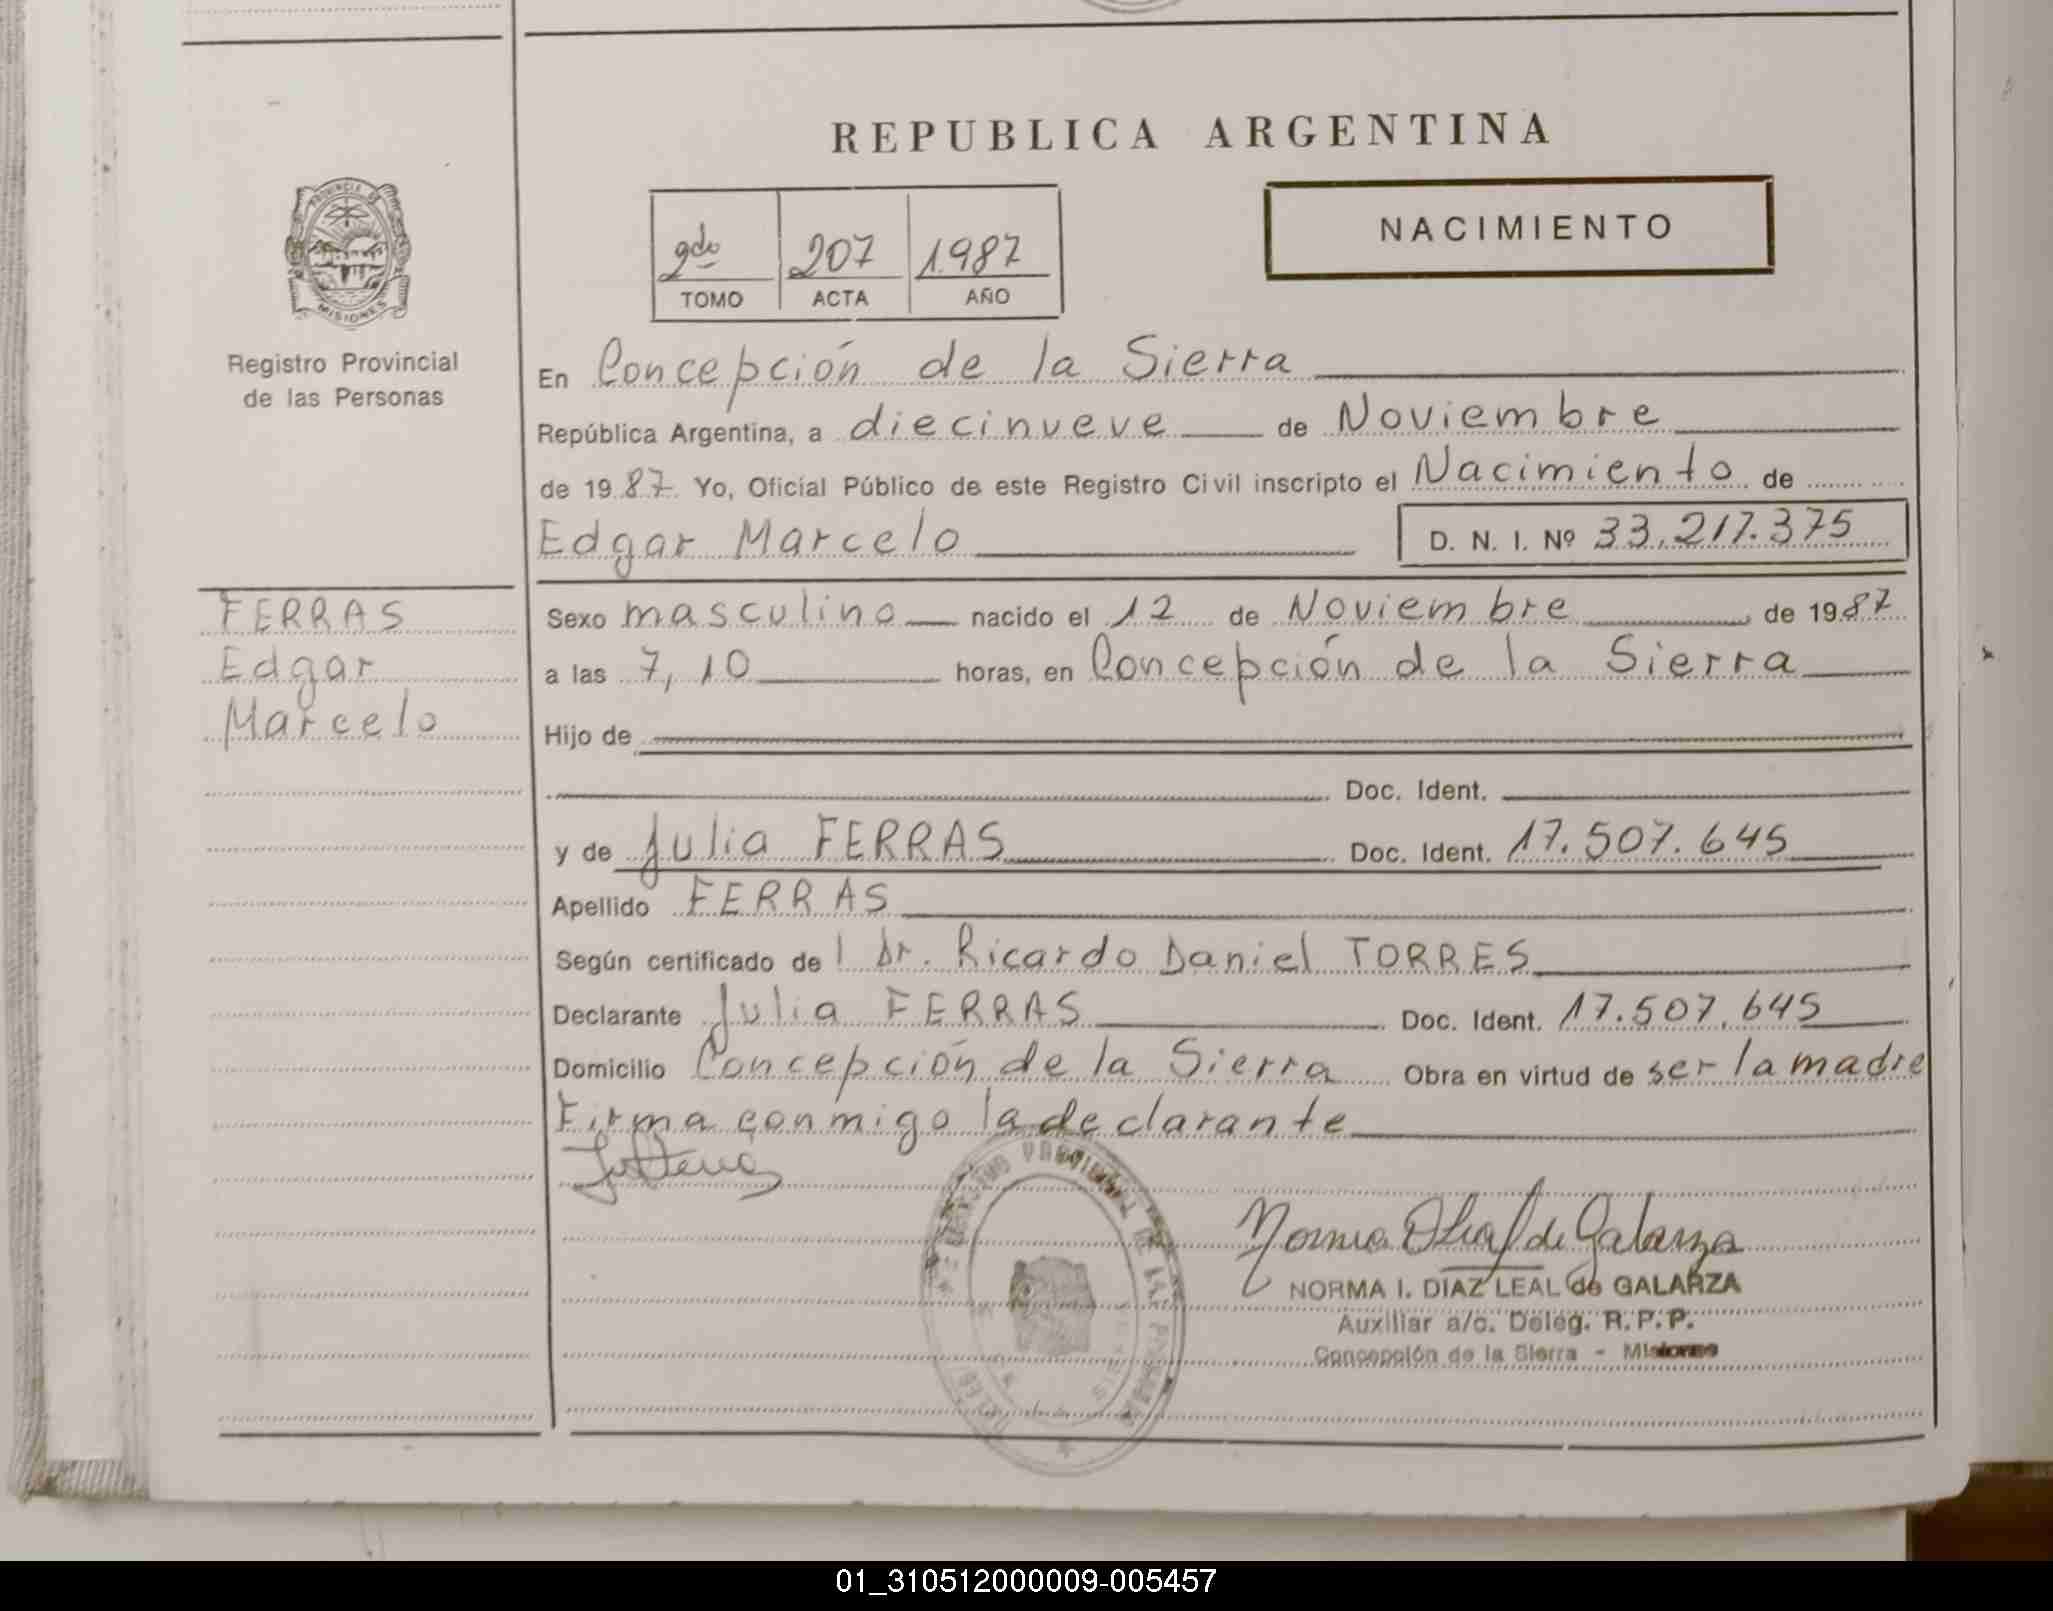 REPUBLICA ARGENTINA
NACIMIENTO
2do 207 1987
TOMO ACTA AÑO
PROVINCIA DE
MISIONES
Registro Provincial
de las Personas
FERRAS
Edgar
Marcelo
En Concepción de la Sierra
República Argentina, a diecinueve de Noviembre
de 1987 Yo, Oficial Público de este Registro Civil inscripto el Nacimiento de
Edgar Marcelo D. N. I. Nº 33.217.375
Sexo masculino nacido el 12 de Noviembre de 1987
a las 7,10 horas, en Concepción de la Sierra
Hijo de
Doc. Ident.
y de Julia FERRAS Doc. Ident. 17.507.645
Apellido FERRAS
Según certificado de l Dr. Ricardo Daniel TORRES
Declarante Julia FERRAS Doc. Ident. 17.507.645
Domicilio Concepción de la Sierra Obra en virtud de ser la madre
Firma conmigo la declarante
NORMA I. DIAZ LEAL de GALARZA
Auxiliar a/c. Deleg. R.P.P.
Concepción de la Sierra - Misiones
01_310512000009-005457